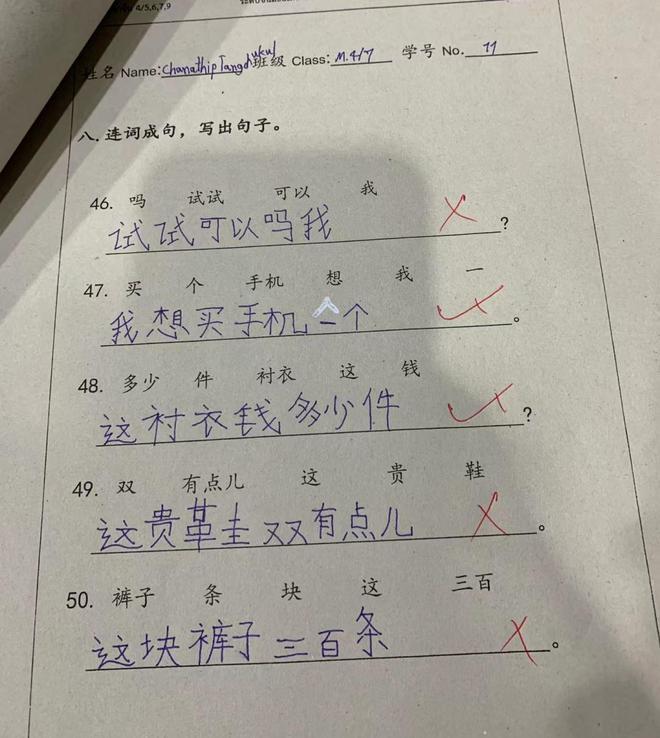 4/5,6,7,9
姓名 Name: Chanathip 班级 Class: M.4/7 学号 No. 11
八. 连词成句，写出句子。
46. 吗 试试 可以 我
试试可以吗我 ?
47. 买 个 手机 想 我 一
我想买手机一个 。
48. 多少 件 衬衣 这 钱
这衬衣钱多少件 ?
49. 双 有点儿 这 贵 鞋
这贵鞋双有点儿 。
50. 裤子 条 块 这 三百
这块裤子三百条 。